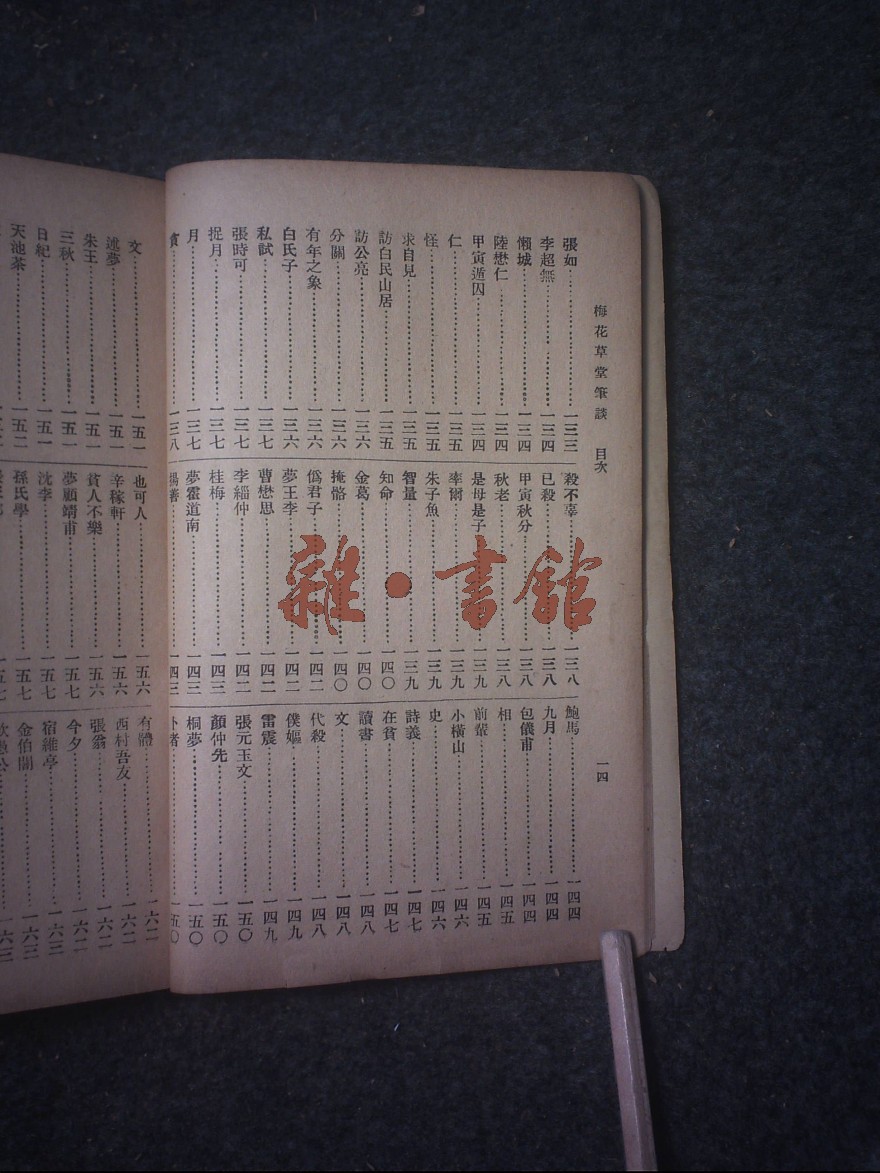 梅花草堂筆談 目次 一四
張如 一三三
李超無 一三四
懶城 一三四
陸懋仁 一三四
甲寅遁囚 一三四
仁 一三五
怪 一三五
求自見 一三五
訪白民山居 一三五
訪公亮 一三六
分關 一三六
有年之象 一三六
白氏子 一三六
私試 一三七
張時可 一三七
捉月 一三七
月 一三七
貧 一三八
殺不辜 一三八
已殺 一三八
甲寅秋分 一三八
秋老 一三八
是母是子 一三九
率爾 一三九
朱子魚 一三九
智量 一三九
知命 一四〇
金葛 一四〇
掩骼 一四〇
僞君子 一四二
夢王李 一四二
曹懋思 一四二
李緇仲 一四二
桂梅 一四三
夢霍道南 一四三
揚善 一四三
鮑馬 一四四
九月 一四四
包儀甫 一四四
相 一四五
前輩 一四五
小橫山 一四六
史 一四六
詩義 一四七
在貧 一四七
讀書 一四八
文 一四八
代殺 一四八
僕嫗 一四九
雷震 一四九
張元玉文 一五〇
顏仲先 一五〇
桐夢 一五〇
者 一五〇
文 一五一
述夢 一五一
朱王 一五一
三秋 一五一
日紀 一五一
天池茶 一五二
也可人 一五六
辛稼軒 一五六
貧人不樂 一五六
夢顧靖甫 一五七
沈李 一五七
孫氏學 一五七
有體 一六二
西村吾友 一六二
張翁 一六二
今夕 一六二
宿維亭 一六三
金伯閶 一六三
雜·書館